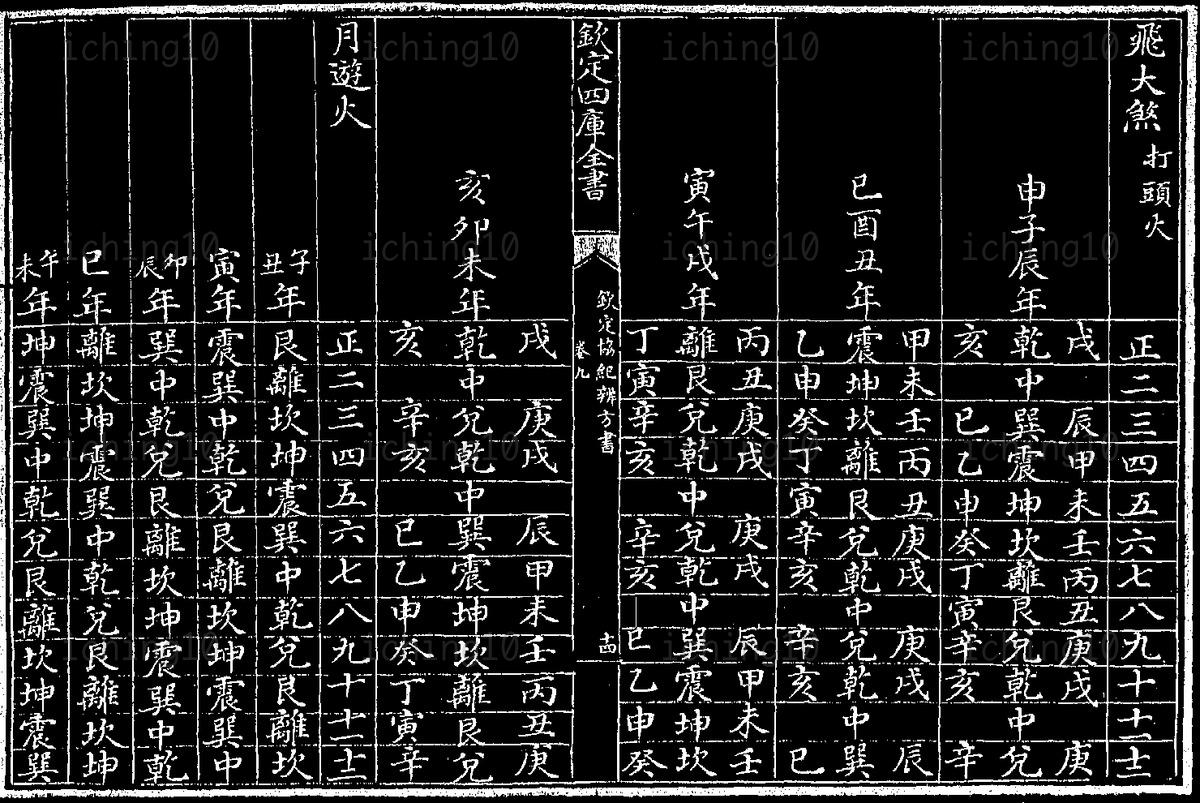 飛大煞 打頭火
正二三四五六七八九十十一十二
申子辰年
戌辰甲未壬丙丑庚戌庚
乾中巽震坤坎離艮兌乾中兌
亥巳乙申癸丁寅辛亥辛
巳酉丑年
甲未壬丙丑庚戌庚戌辰
震坤坎離艮兌乾中兌乾中巽
乙申癸丁寅辛亥辛亥巳
寅午戌年
丙丑庚戌庚戌辰甲未壬
離艮兌乾中兌乾中巽震坤坎
丁寅辛亥辛亥巳乙申癸
欽定四庫全書
欽定協紀辨方書
卷九
十四
亥卯未年
戌庚戌辰甲未壬丙丑庚
乾中兌乾中巽震坤坎離艮兌
亥辛亥巳乙申癸丁寅辛
月遊火
正二三四五六七八九十十一十二
子丑年艮離坎坤震巽中乾兌艮離坎
寅年震巽中乾兌艮離坎坤震巽中
卯辰年巽中乾兌艮離坎坤震巽中乾
巳年離坎坤震巽中乾兌艮離坎坤
午未年坤震巽中乾兌艮離坎坤震巽
iching10 iching10 iching10 iching10
iching10 iching10 iching10 iching10
iching10 iching10 iching10 iching10
iching10 iching10 iching10 iching10